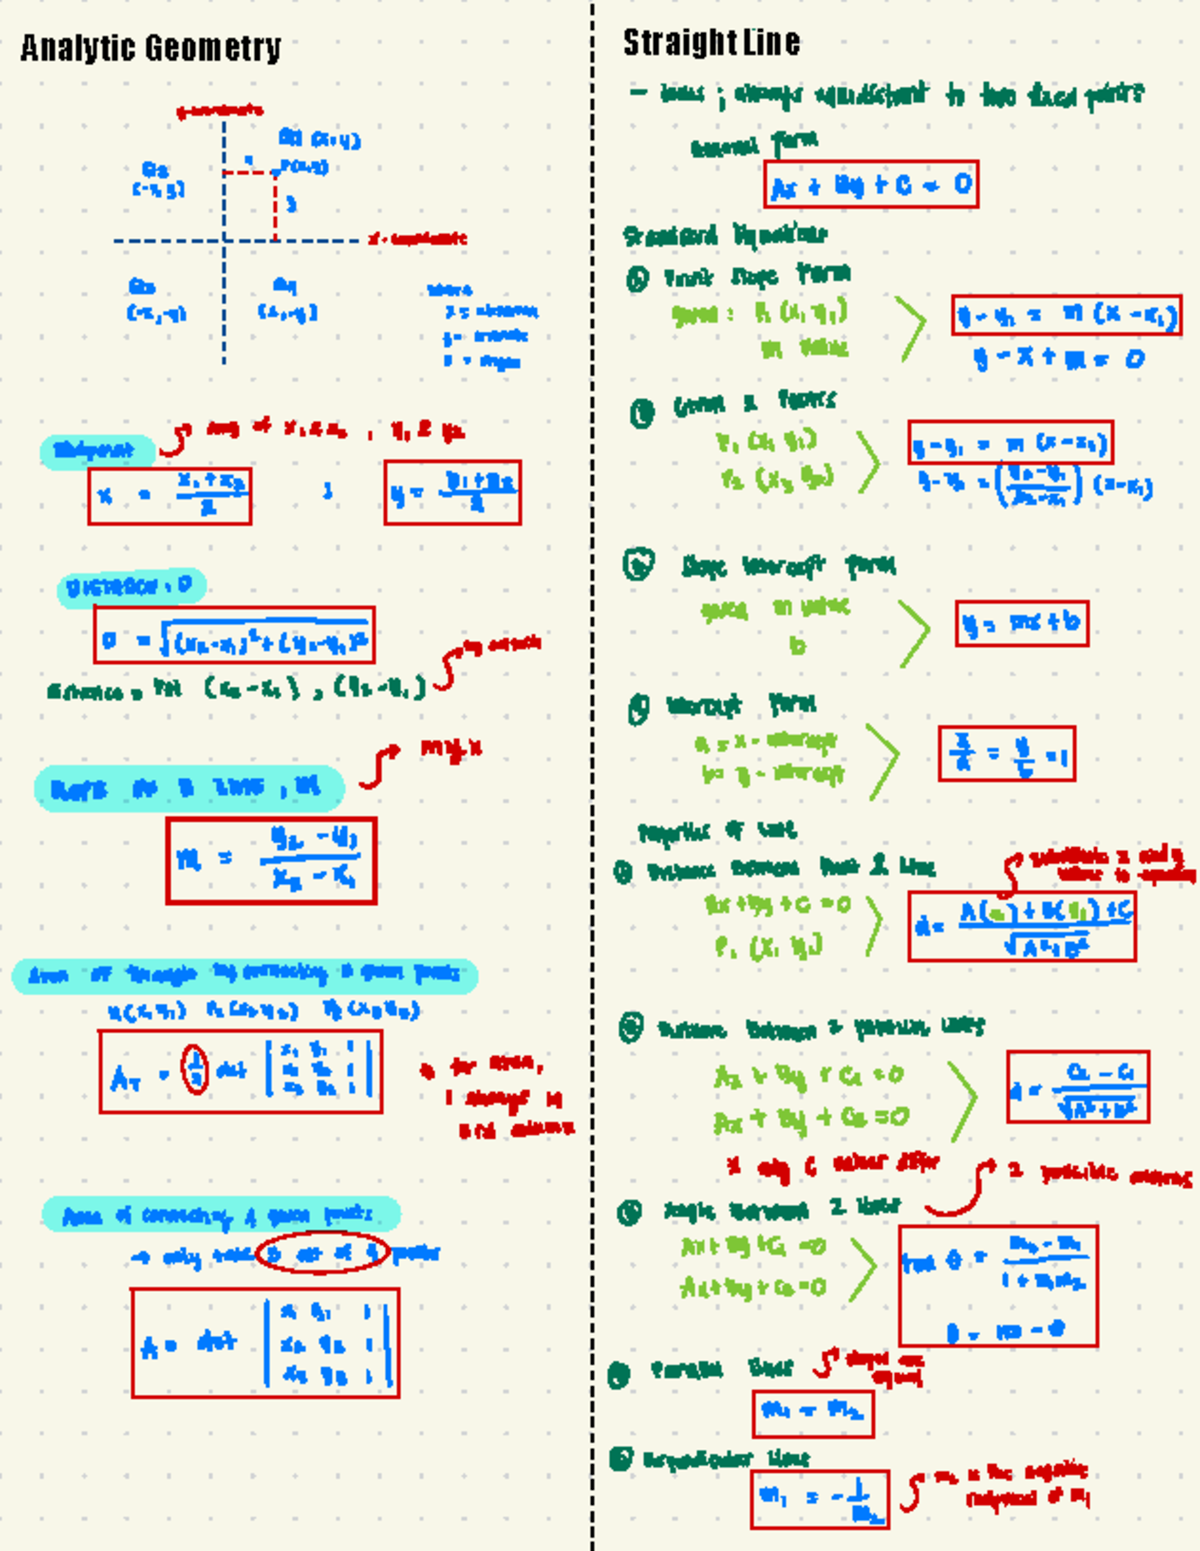 Analytic Geometry
y-coordinate
Q1 (x, y)
P(x,y)
Q2
(-x, y)
x
y
x-coordinate
Q3
(-x,-y)
Q4
(x,-y)
where
x = abscissa
y = ordinate
0 = origin
Midpoint
avg of x1 & x2 , y1 & y2
x = x1 + x2 / 2 ; y = y1 + y2 / 2
DISTANCE, D
D = √(x2-x1)²+(y2-y1)²
distance = Pol (x2-x1) , (y2-y1)
SLOPE OF A LINE , M
m = y2 - y1 / x2 - x1
Area of triangle by connecting 3 given points
P1(x1 y1) P2(x2 y2) P3(x3 y3)
AT = 1/2 det | x1 y1 1 | x2 y2 1 | x3 y3 1 |
* for area,
1 always in
3rd column
Area of connecting 4 given points
→ only take 3 out of 4 points
A = det | x1 y1 1 | x2 y2 1 | x3 y3 1 |
Straight Line
- locus ; always equidistant to two fixed points
General Form
Ax + By + C = 0
Standard Equations
① Point Slope Form
given : P1 (x1 y1)
m value
y - y1 = m (x - x1)
y - x + m = 0
② Given 2 Points
P1 (x1 y1)
P2 (x2 y2)
y - y1 = m (x - x1)
y - y1 = (y2 - y1 / x2 - x1) (x - x1)
③ Slope Intercept Form
given m value
b
y = mx + b
④ Intercept Form
a = x - intercept
b = y - intercept
x/a = y/b = 1
Properties of Line
① Distance Between Point & Line
substitute x and y
Ax + By + C = 0
P1 (x1 y1)
d = A(x1) + B(y1) + C / √A² + B²
② Distance Between 2 parallel lines
Ax + By + C1 = 0
Ax + By + C2 = 0
d = C2 - C1 / √A² + B²
* only C values differ
2 possible answers
③ Angle Between 2 lines
Ax + By + C1 = 0
Ax + By + C2 = 0
tan θ = m2 - m1 / 1 + m1m2
β = 180 - θ
④ Parallel lines
slopes are
equal
m1 = m2
⑤ Perpendicular lines
m1 = - 1/m2
m2 is the negative
reciprocal of m1